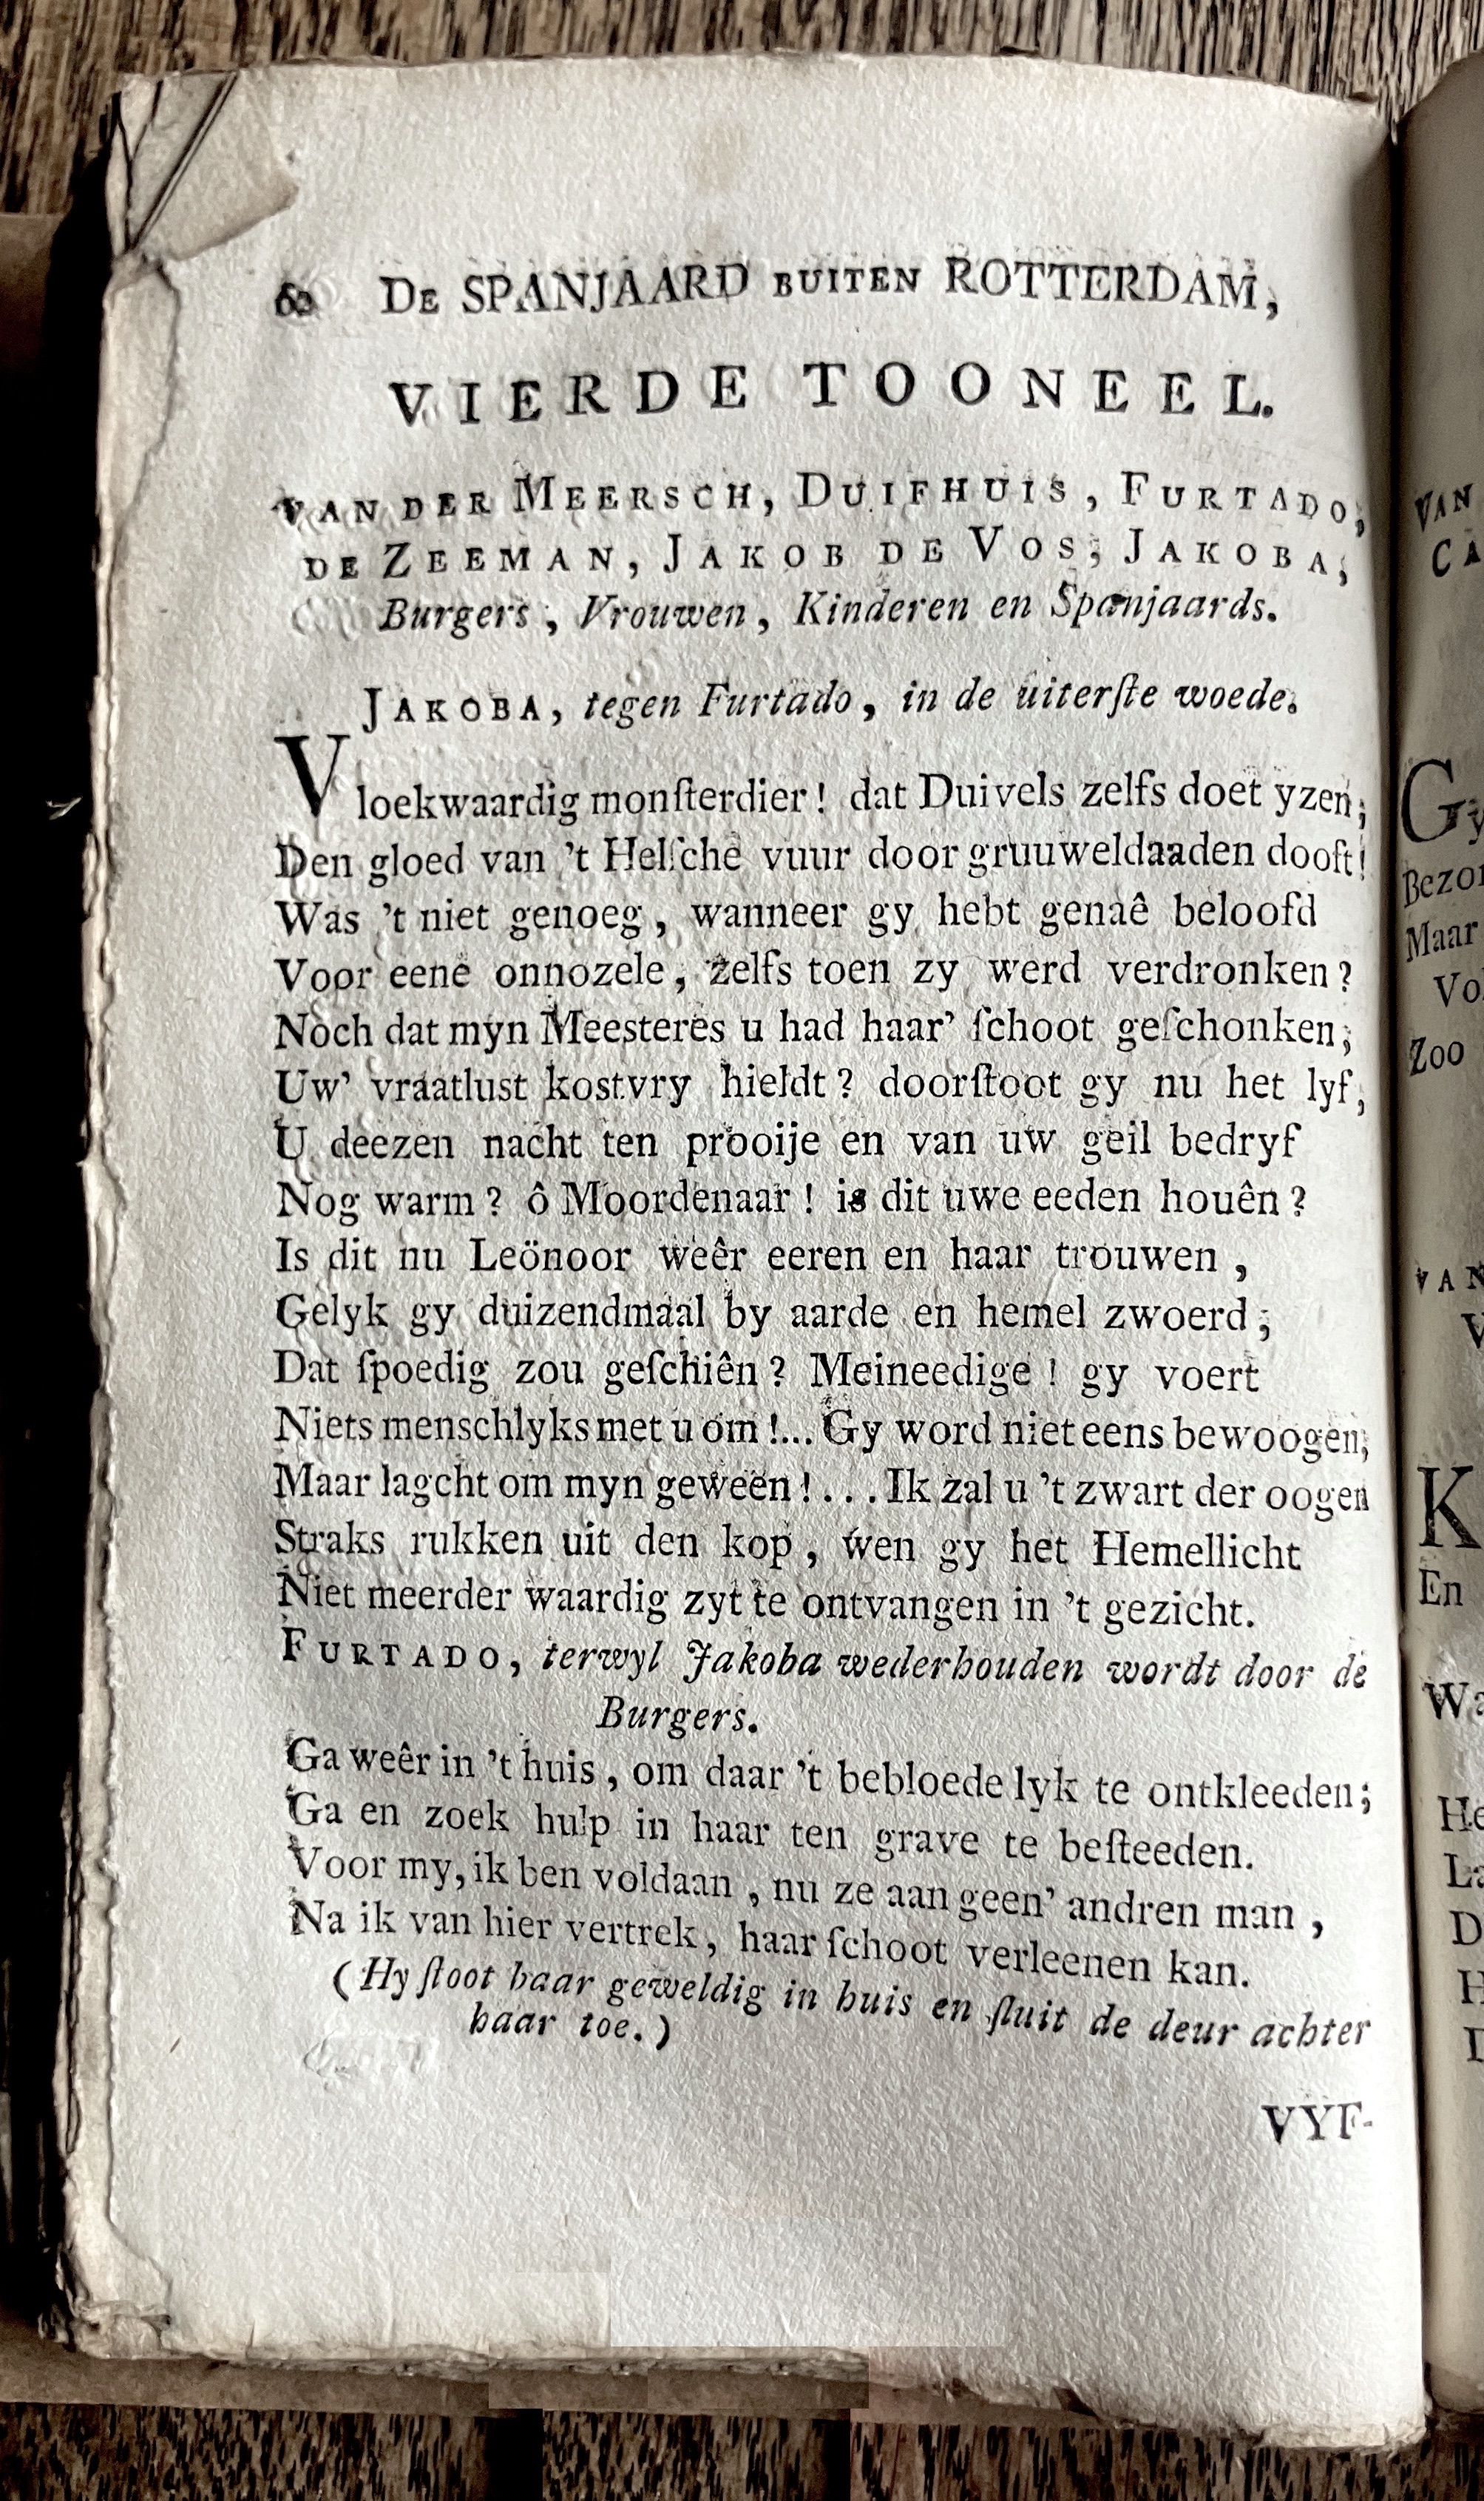 60 DE SPANJAARD BUITEN ROTTERDAM,
VIERDE TOONEEL.
VAN DER MEERSCH, DUIFHUIS, FURTADO,
DE ZEEMAN, JAKOB DE VOS, JAKOBA,
Burgers, Vrouwen, Kinderen en Spanjaards.
JAKOBA, tegen Furtado, in de uiterſte woede.
Vloekwaardig monſterdier! dat Duivels zelfs doet yzen;
Den gloed van 't Helſche vuur door gruuweldaaden dooft!
Was 't niet genoeg, wanneer gy hebt genaê beloofd
Voor eene onnozele, zelfs toen zy werd verdronken?
Noch dat myn Meesteres u had haar' ſchoot geſchonken;
Uw' vraatlust kostvry hieldt? doorſtoot gy nu het lyf,
U deezen nacht ten prooije en van uw geil bedryf
Nog warm? ô Moordenaar! is dit uwe eeden houên?
Is dit nu Leönoor weêr eeren en haar trouwen,
Gelyk gy duizendmaal by aarde en hemel zwoerd;
Dat ſpoedig zou geſchiên? Meineedige! gy voert
Niets menschlyks met u om!... Gy word niet eens bewoogen,
Maar lagcht om myn geween!... Ik zal u 't zwart der oogen
Straks rukken uit den kop, wen gy het Hemellicht
Niet meerder waardig zyt te ontvangen in 't gezicht.
FURTADO, terwyl Jakoba wederhouden wordt door de
Burgers.
Ga weêr in 't huis, om daar 't bebloede lyk te ontkleeden;
Ga en zoek hulp in haar ten grave te beſteeden.
Voor my, ik ben voldaan, nu ze aan geen' andren man,
Na ik van hier vertrek, haar ſchoot verleenen kan.
(Hy ſtoot haar geweldig in huis en ſluit de deur achter
haar toe.)
VYF-
VAN
CA
Gy
Bezon
Maar
Vol
Zoo
VAN
V
K
En
Wa
He
La
D
H